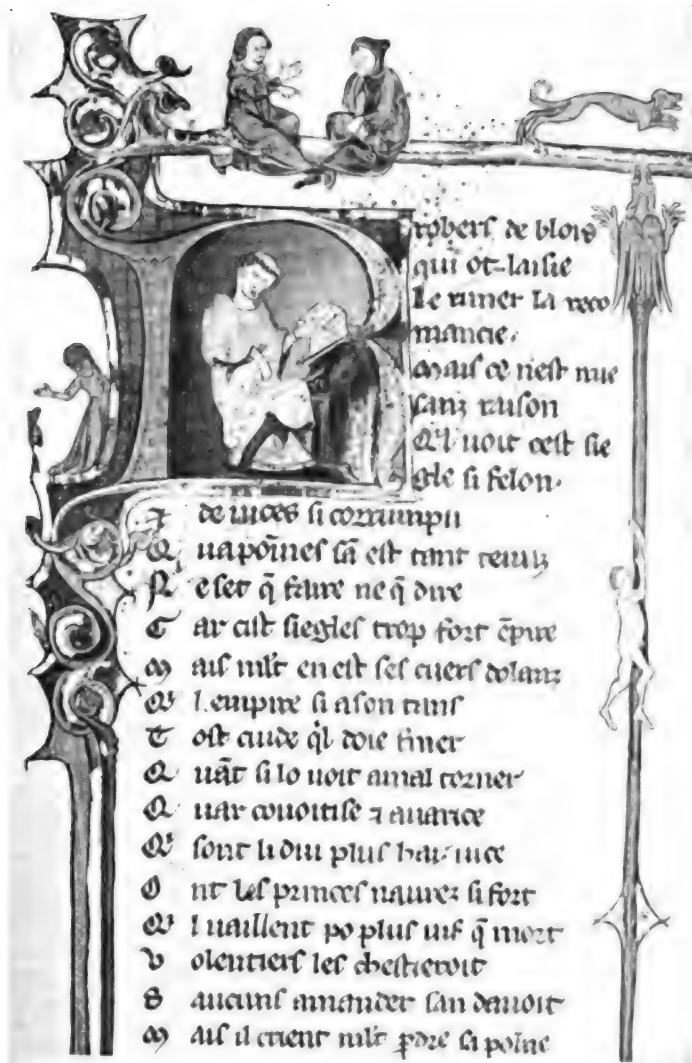 Robers de blois
qui ot laisie
le rimer la reco
mancie.
Mais ce nest mie
sanz raison
Qͥl uoit cest sie
gle si felon.
⁊ de uices si corrumpu
Q uapoines sā est tant tenuz
N e set q̄ faire ne q̄ dire
C ar cist siegles trop fort ēpire
M ais mlt en est ses cuers dolanz
Qͥ lempire si a son tans
T ost cuide qͥl doie finer
Q uāt si lo uoit a mal torner
Q uar couoitise ⁊ auarice
Qͥ sont li dui plus hai uice
O nt les princes naurez si fort
Qͥ l uaillent po plus uif q̄ mort
V olentiers les chestieroit
S aucuns amander san dauoit
M ais il crient mlt ꝑdre sa poine